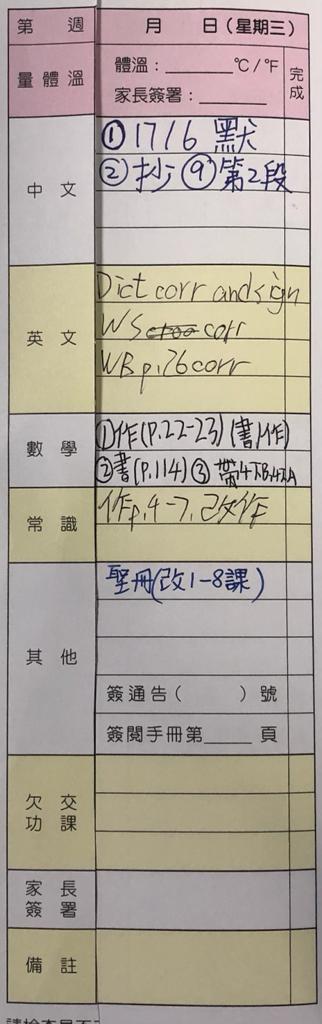 第 週 月 日(星期三)
量體溫 體溫：______°C/°F 完成
家長簽署：______
中文 ①17/6 默
②抄⑨第2段
英文 Dict corr and sign
WS corr
WB p.26 corr
數學 ①作(P.22-23)(書作)
②書(P.114)③帶4下B,4下A
常識 作p.4-7,改作
其他 聖冊(改1-8課)
簽通告( )號
簽閱手冊第____頁
欠交功課
家長簽署
備註